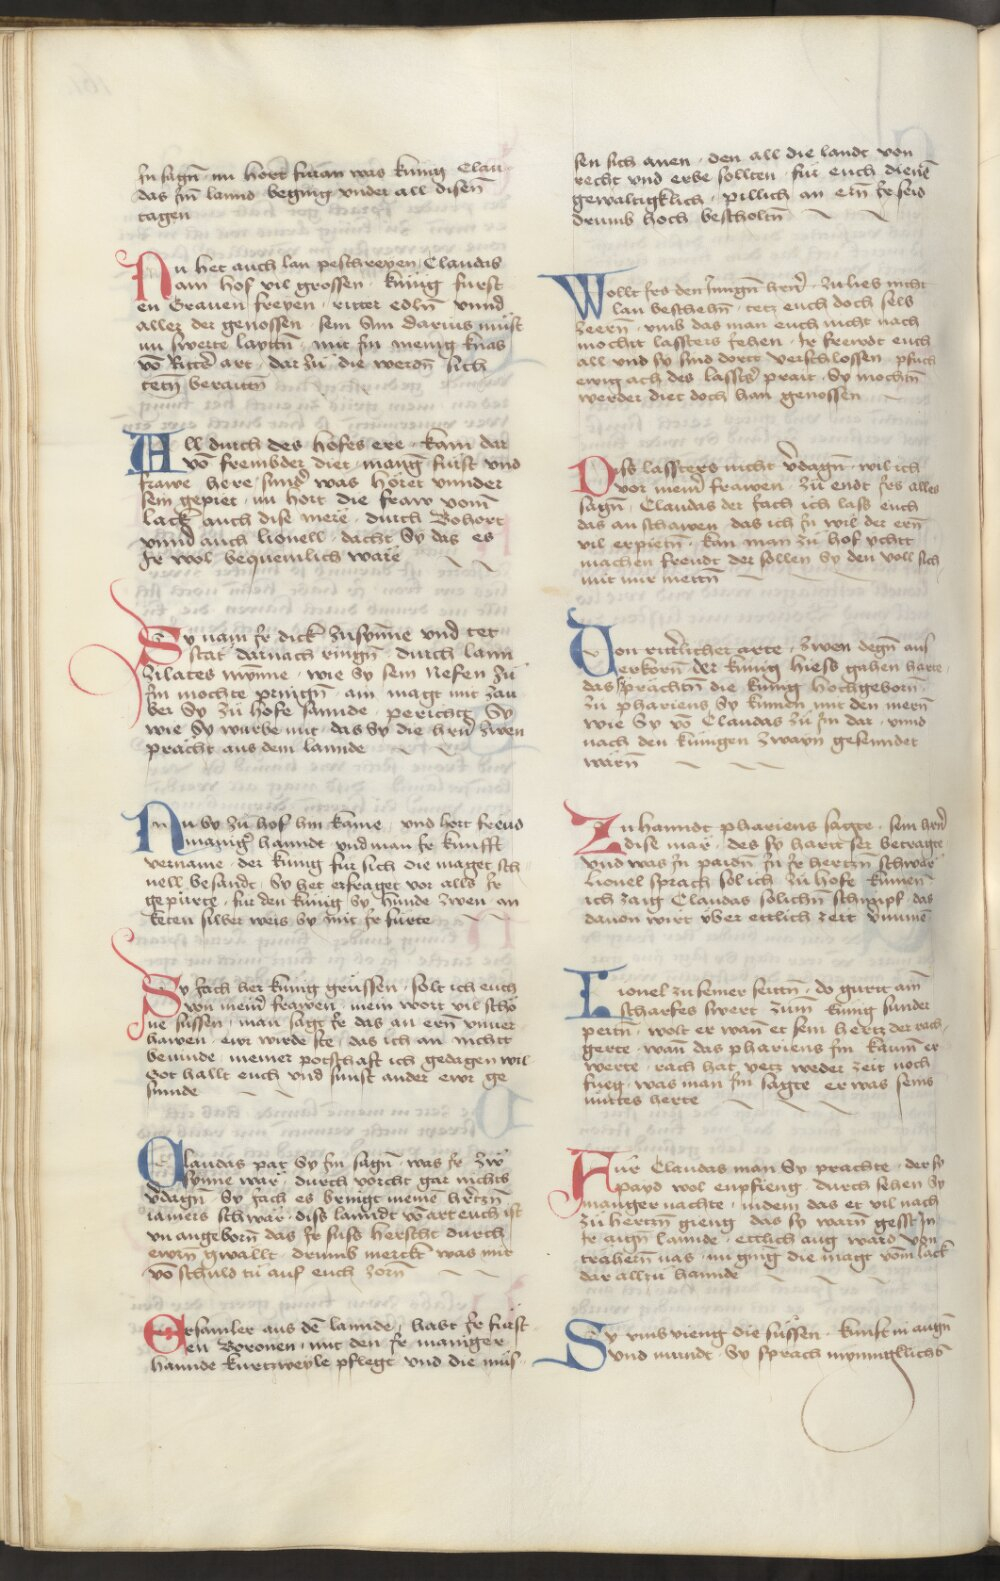 In sagn̄ · nu hort furan was kunig Clau-
das Im lannd beging vnder all disen̄
tagen
Nu het auch lan peschreyen Claudas
ain hof vil grossen · kunig furst
en Grauen freyen · ritter edln̄ vnnd
aller der genossen · sein Sun darius must
nu swerte laytn̄ · mit Im menig knab
vō Ritt's art · dar zu die werdn̄ sich
tetn̄ beraitn̄
All durch des hofes ere · kam dar
vō frembder diet · mang furst vnd
frawe here · sund' was höret vnnder
sein gepiet · nu hort die fraw vom̄
lack auch dise mere · durch Bohort
vnnd auch lionell · dacht Sy das es
Ir wol bequemlich ware
Sy nam Ir dick zu synne vnd tet
stat darnach ringn̄ · durch lann
zilates mynne · wie Sy sein Nefen zu
Im mochte pringn̄ · ain magt mit zau
ber Sy zu hofe sannde · pericht Sy
wie Sy wurbe mit · das Sy die hrn̄ zwen
pracht aus dem lannde
Nu Sy zu hof hin kame · vnd hort freud
manig' hanndt · vnd man Ir kunfft
vername · der kunig fur sich die maget sch
nell besandt · Sy het erfraget vor alls Ir
gepurte · fur den kunig Sy hunde zwen an
keten silber weis Sy mit Ir furte
Sy sach her kunig grussen · solt ich euch
von mein' frawen · mein wort vil scho
ne sussen · man sagt Ir das an ern̄ vnuer
hawen · ewr wirde ste · das ich an nichte
beuinde · meiner potschaft ich gedagen wil
Got hallt euch vnd sunst ander ewr ge
sinnde
Claudas pat Sy Im sagn̄ · was Ir zw
synne war · durch vorcht gar nichts
v'dagn̄ · Sy sach es bringt meine hertzn̄
iamers schwar · diss lanndt vō art euch ist
vn angeborn̄ das Ir suss herscht durch
ewrn̄ gwallt · drumb merckt was mir
vō schuld tu auf euch zorn̄
Ersamler aus de lannde · habt Ir furst
en Boronen · mit den Ir maniger
hannde kurtzweyle pflegt vnd die mus-
sen sich anen · den all die landt von
recht vnd erbe sollten · fur euch dienē
gewaltigklich · pillich an ern̄ Ir seid
drumb hoch bescholtn̄
Wollt Irs den Jungn̄ hrn̄ · zu lieb nicht
lan beschehn̄ · tetz euch doch selb
zeern̄ · vmb das man euch nicht nach
mocht lassters Jehen · Ir frewdt euch
all vnd Sy sind dortt verschlossen · pfuch
ewig ach des lasst's prait · Sy mochtn̄
werder diet doch han genossen
Diss lassters nicht v'dagn̄ · wil ich
vor mein' frawen · zu endt Irs alles
sagn̄ · Claudas der sach ich lass euch
das an schawen · das ich In wil der ern̄
vil erpietn̄ · kan man zu hof ychtt
machen freudt der sollen Sy den voll sich
mit mir nietn̄
Von ritt'licher arte · zwen degn̄ aus
erkorn̄ · der kunig hiess gahen harte ·
das sy prachtn̄ die kunig hochgeborn̄ ·
zu phariens Sy kumen mit den mern̄
wie Sy vō Claudas zu Im dar · vnnd
nach den kunigen zwayn gesenndet
warn̄
Zu hanndt phariens sagte · sein hrn̄
dise mar · des sy hart ser betragte
vnd was In paidn̄ In Ir hertzn̄ schwar
lionel sprach sol ich zu hofe kumen
ich zaig Claudas solichn̄ schimpf · das
dauon wirt vber ettlich zeit vnnmē
Lionel zu seiner seittn̄ · do gurtt ain̄
scharfes swert · zum kunig sunder
peitn̄ · wolt er wan̄ et sein hertz der rach
gerte · wan̄ das phariens Im kaum er
werte · rach hat yetz weder zeit noch
fueg · was man Im sagte er was seins
muttes herte
Fur Claudas man Sy prachte · der sy
payd wol enpfieng · durch sehen Sy
maniger nachte · indem das et vil nach
zu hertzn̄ gieng das sy warn̄ gesst In
Ir aign̄ lannde · ettlich aug ward von
trahern̄ nas · nu ging die magt vom lack
dar alltzu hannde
Sy vmb vieng die sussen · kunst in augn̄
vnd mundt · Sy sprach mynnigklichs